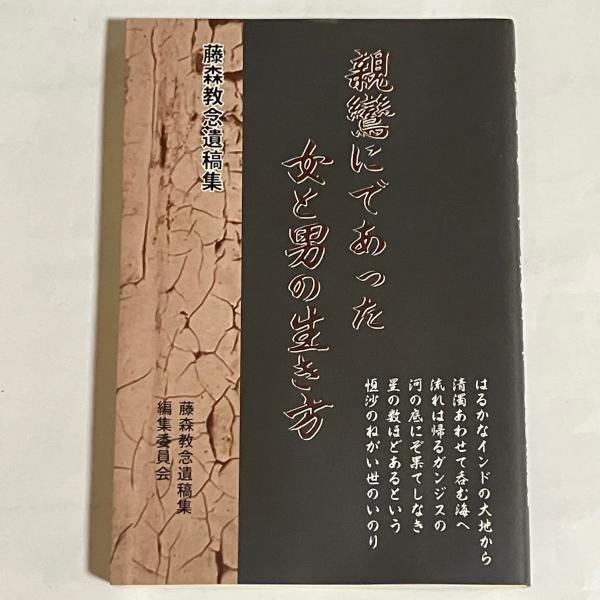 親鸞にであった
女と男の生き方
藤森教念遺稿集
はるかなインドの大地から
清濁あわせて呑む海へ
流れは帰るガンジスの
河の底にぞ果てしなき
星の数ほどあるという
恒沙のねがい世のいのり
藤森教念遺稿集
編集委員会